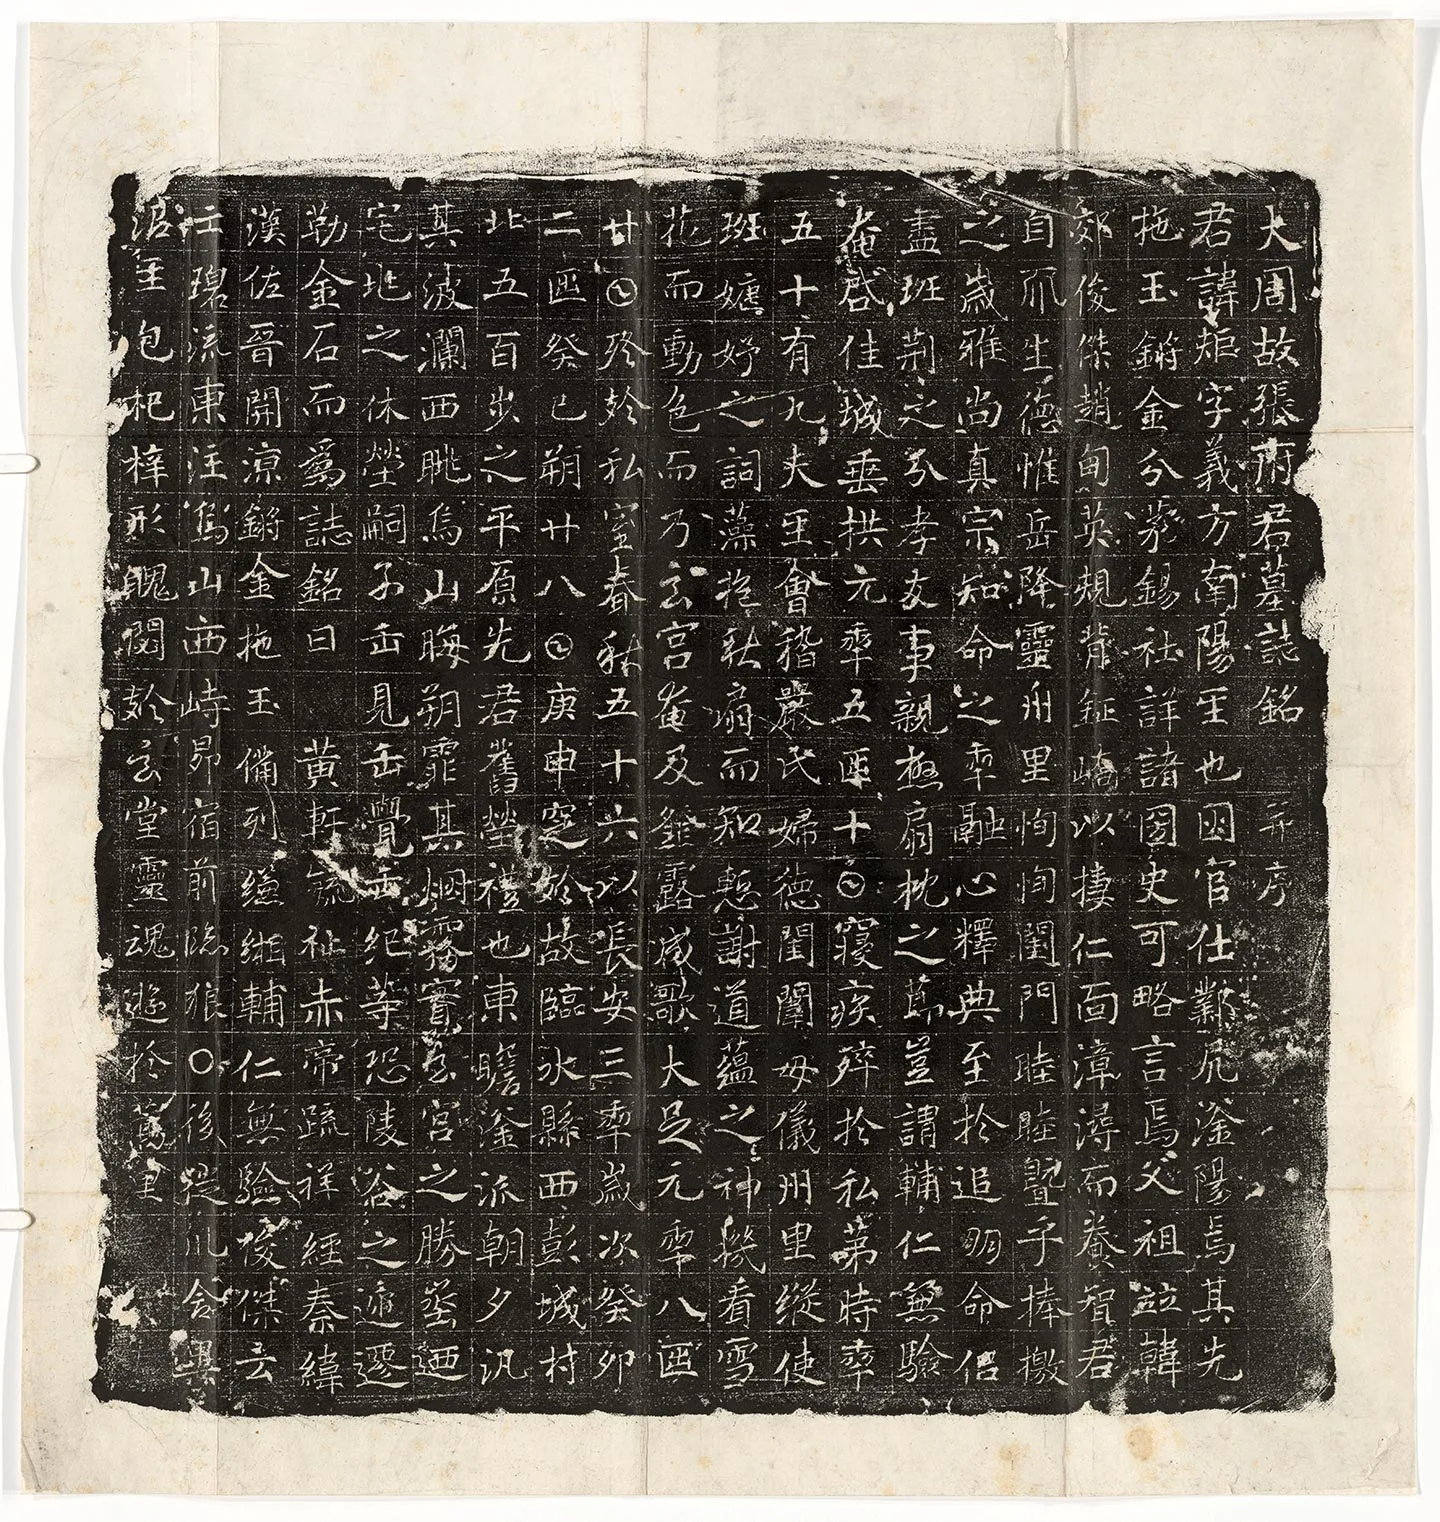 大周故張府君墓誌銘 并序
君諱矩字義方南陽𤯔也因官仕鄴宅滏陽焉其先
拖玉鏘金分茅錫社詳諸圀史可略言焉父祖竝韓
郊俊傑趙甸英規背鉦嶠以捿仁面漳潯而養智君
自生德惟岳降靈州里恂恂閨門睦睦暨乎捧檄
之歲雅尚真宗知命之𠡦融心釋典至於追朋命侶
盡班荆之分孝友事親極扇枕之莭豈謂輔仁無驗
奄啓佳城垂拱元𠡦五𠥱十𡆠寢疾殞於私苐時𠡦
五十有九夫𤯔會稽嚴氏婦德閨闈母儀州里縱使
班嬪妤之詞藻抱秋扇而知慙謝道藴之神機看雪
花而動色而乃玄宮奄及薤露咸歌大足元𠡦八𠥱
廿𡆠終於私室春秋五十六以長安三𠡦歲次癸卯
二𠥱癸巳朔廿八𡆠庚申窆於故臨水縣西彭城村
北五百步之平原先君舊塋禮也東瞻滏派朝夕汎
其波瀾西眺烏山晦朔霏其烟霧實玄宮之勝埊迺
宅兆之休塋嗣子缶見缶覺缶紀等恐陵谷之遞遷
勒金石而為誌銘曰 黄軒流祉赤帝疏祥經秦緯
漢佐晉開涼鏘金拖玉備列縑緗輔仁無驗俊傑云
亡碧流東注烏山西峙昴宿前臨狼〇後從川含異
沼埊包杞梓形魄閟於玄堂靈魂遊於蒿里